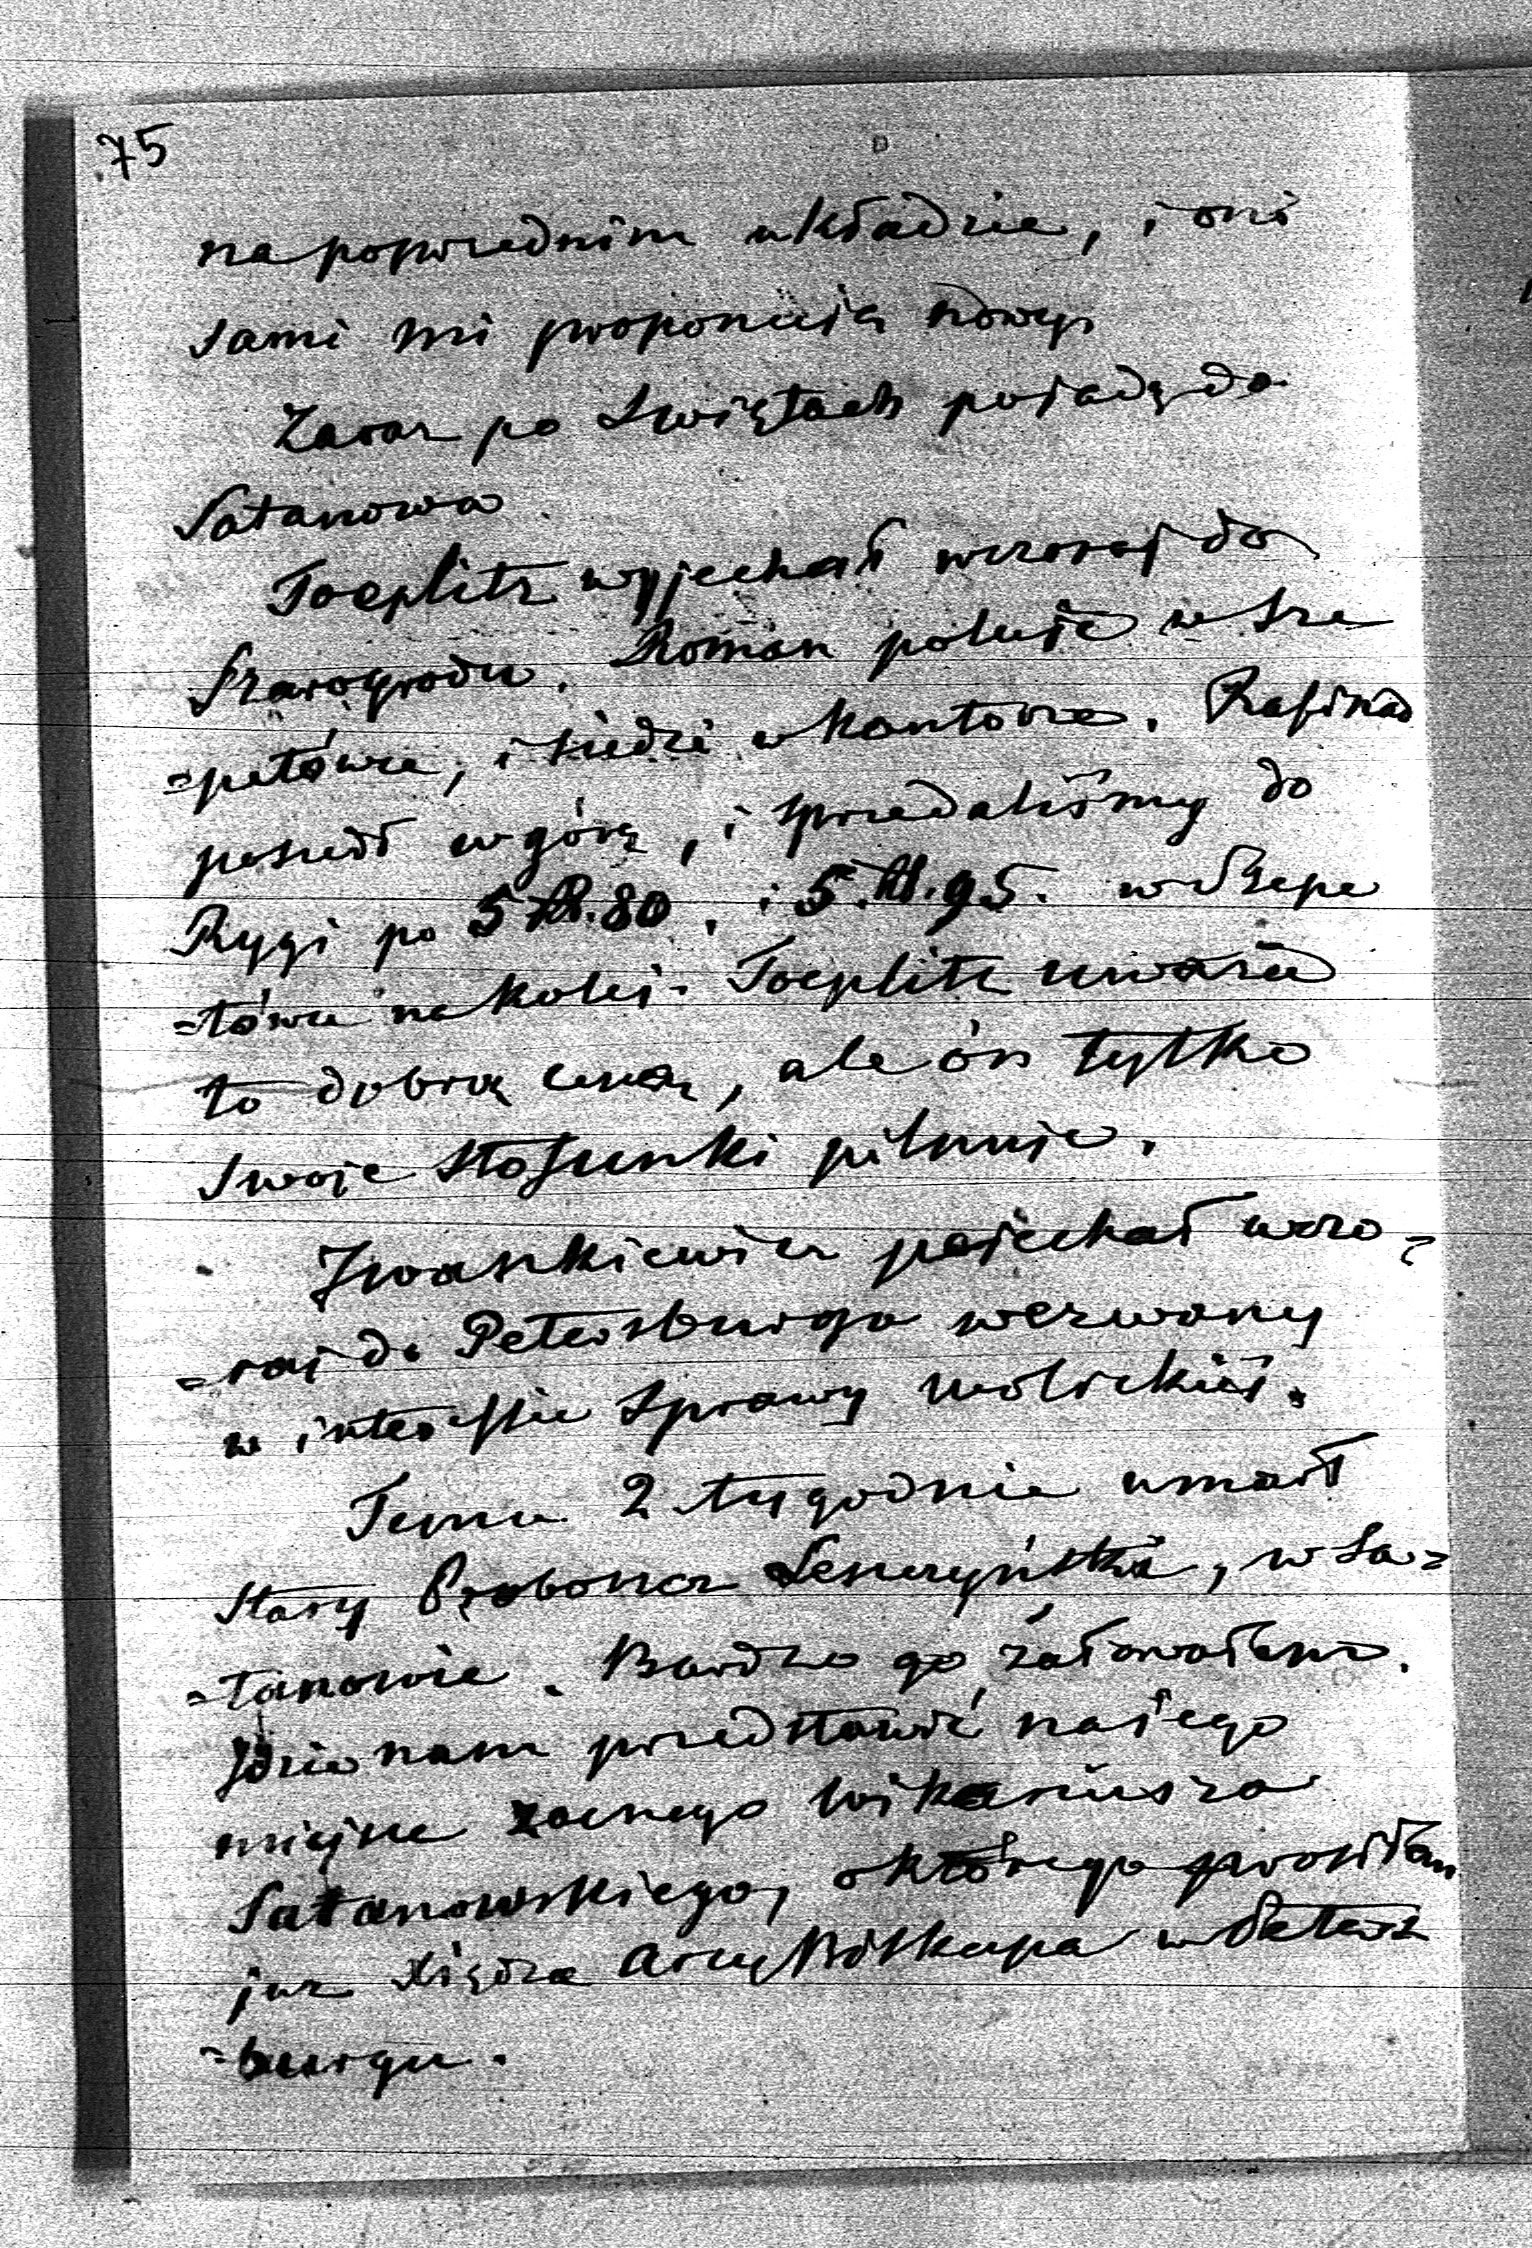 75
na poprzednim układzie, i oni
sami mi proponują nowy.
Zaraz po Świętach pojadę do
Satanowa
Toeplitz wyjechał wczoraj do
Szarogrodu. Roman poluje w Sze
=petówce, i siedzi w kantorze. Rafinad
poszedł w górę, i sprzedaliśmy do
Rygi po 5 R. 80. i 5. R. 95. w Szepe
=tówce na kolei. Toeplitz uważa
to dobrą ceną, ale ón tylko
swoje stosunki pilnuje.
Iwaszkiewicz pojechał wczo=
=raj do Petersburga wezwany
w interessie sprawy
Temu 2 tygodnie umarł
stary Proboszcz Leszczyński, w Sa=
=tanowie. Bardzo go żałowałem.
Idzie nam przedstawić na jego
miejsce zacnego Wikariusza
Satanowskiego, o którego prosiłem
już Xiędza Arcy Biskupa w Peters
=burgu.